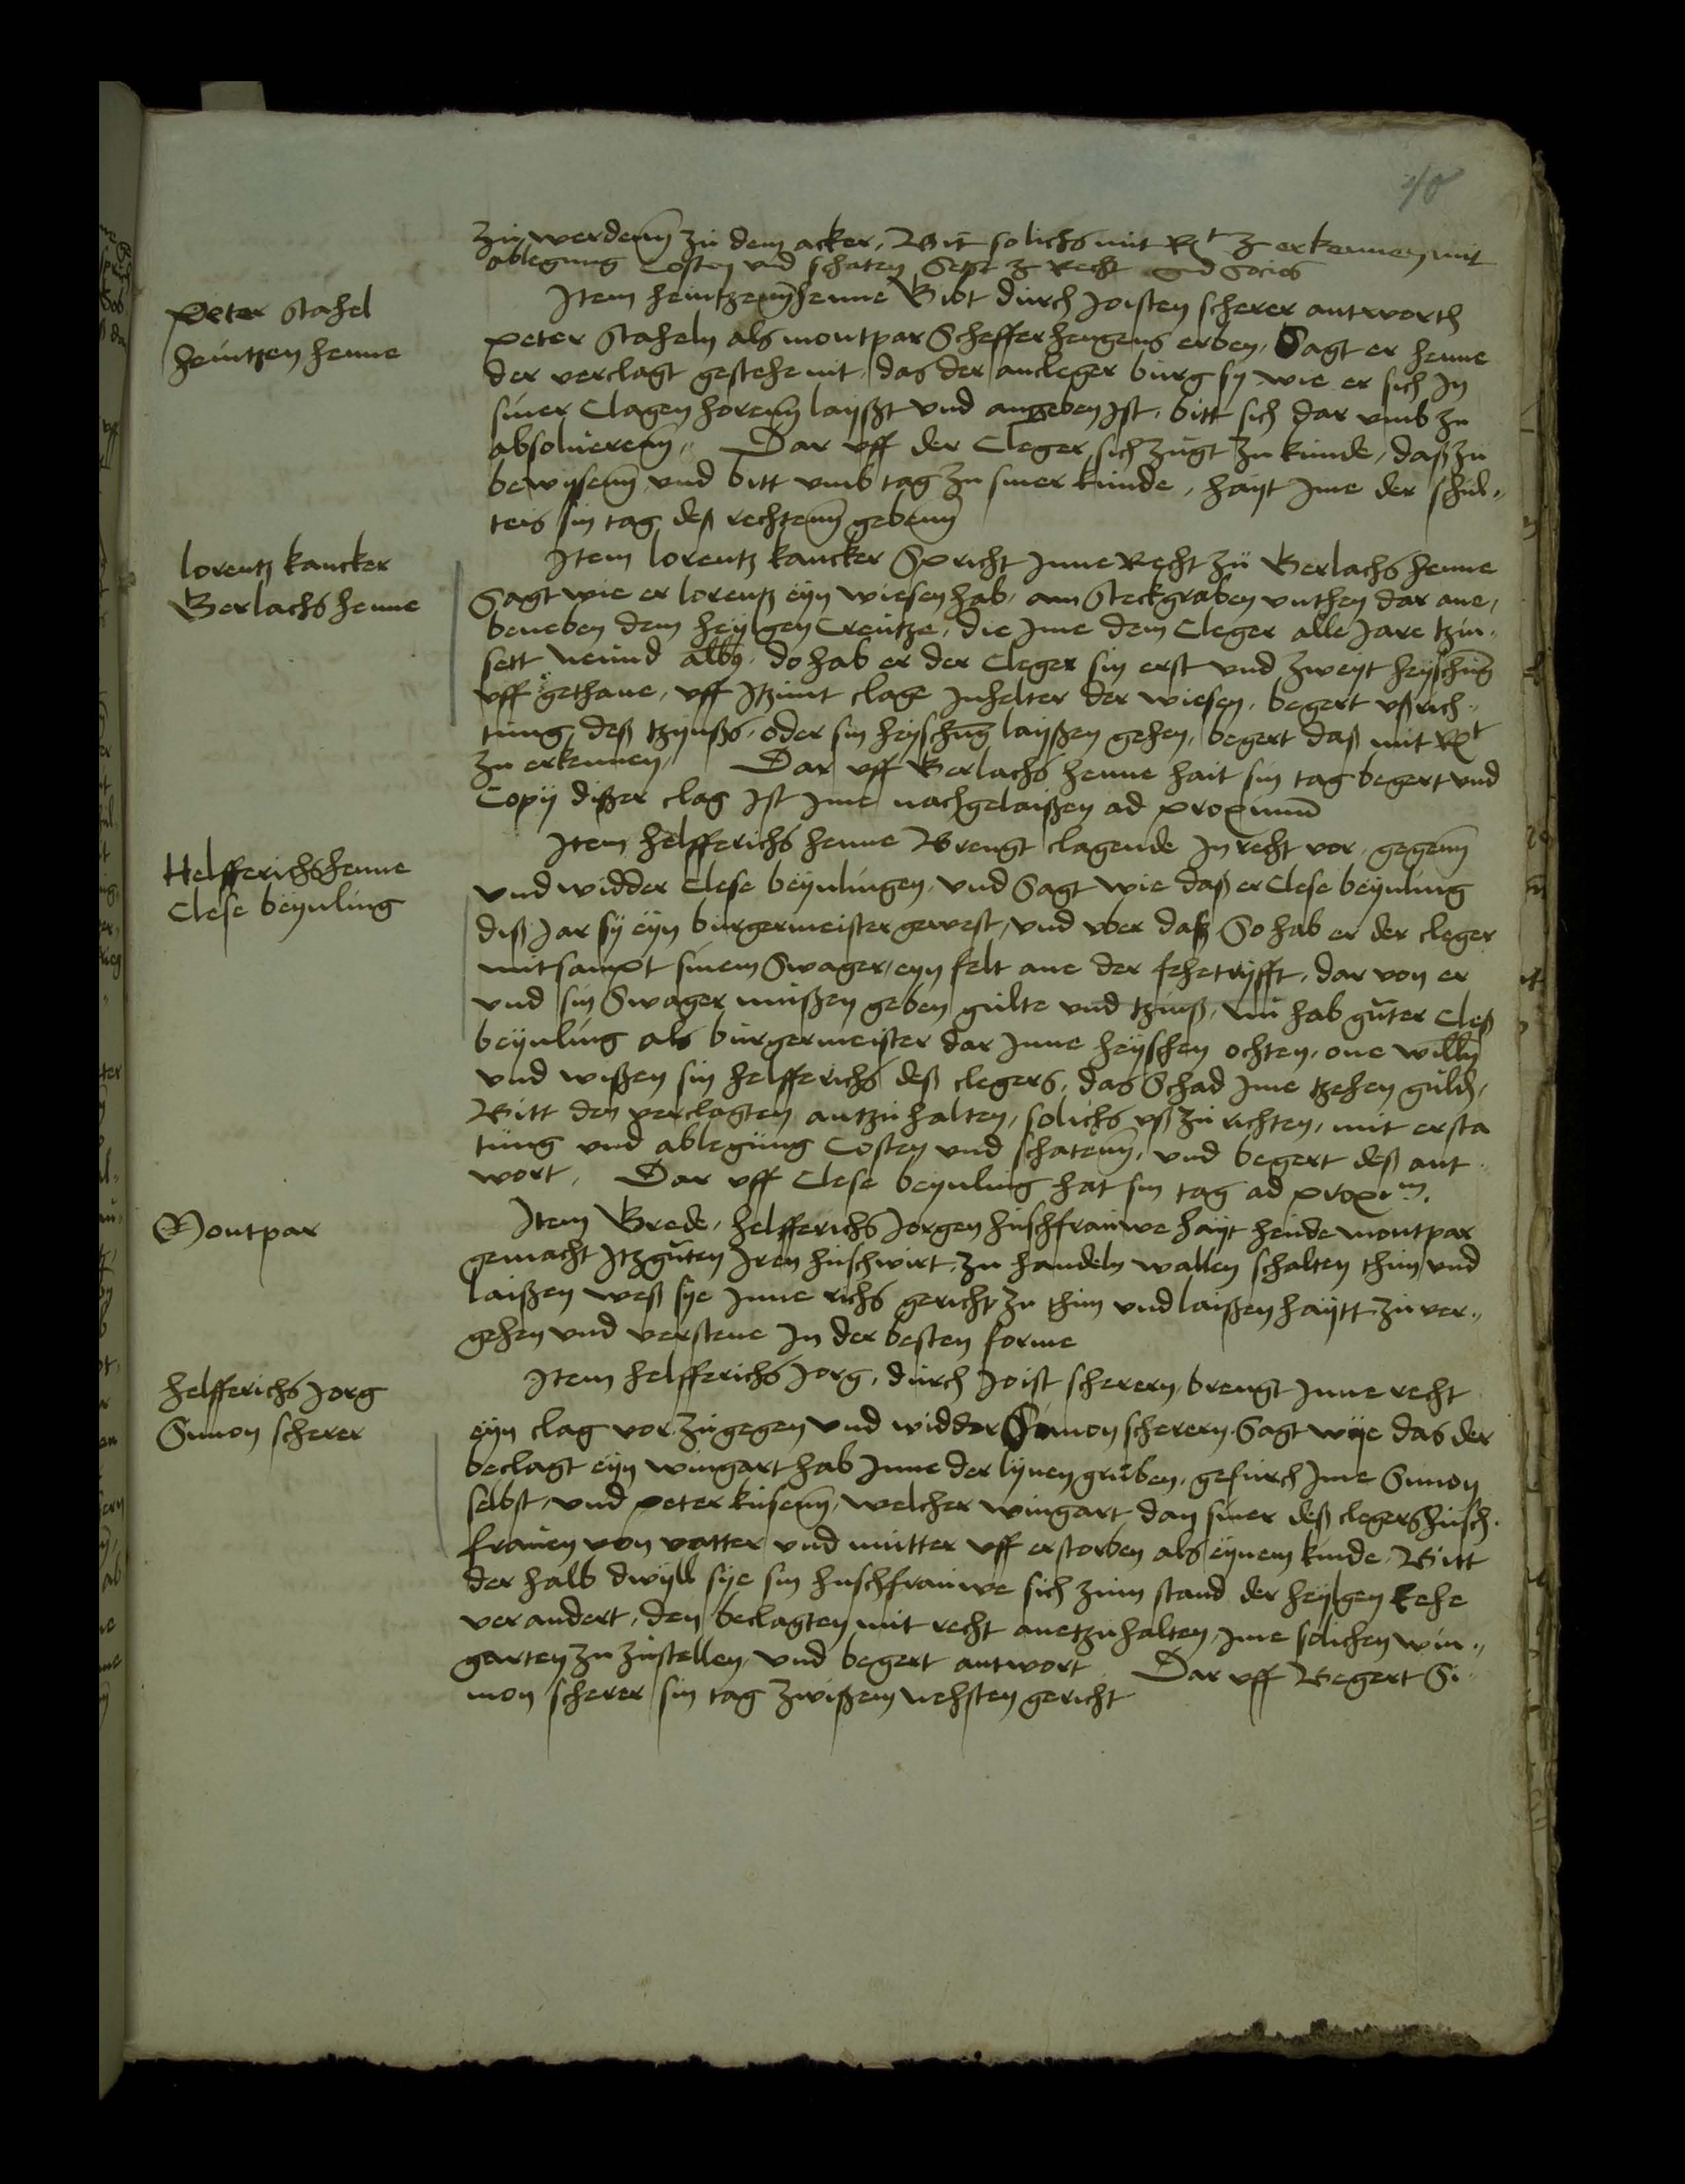 zu werdenn zu dem acker, Bit solichs mit Rt z erkennen mit
ablegung Costen und schaten Setzt z Recht
Peter Stahel
Heintzen henne
Item heintzennhenne Gibt durch Joisten scherer antworth
Peter Staheln als montpar Schefferhengens erben, Sagt er henne
der verclagt gestehe nit, das der ancleger burg sy wie er sich In
siner Clagen horenn laysßt und angeben Ist, bitt sich dar umb zu
absoluierenn, Dar uff der Cleger sich zugt zu kunde, daß zu
bewysenn und bitt umb tag zu siner kunde, hayt Ime der schul-
teis sin tag deß rechtenn gebenn
lorentz kancker
Gerlachs henne
Item lorentz kancker Spricht Inne Recht zu Gerlachs henne
Sagt wie er lorentz eyn wiesen hab, am Steckgraben unthen dar ane,
beneben dem heylgen Creutze, die Ime dem Cleger alle Jare tzin-
sett neund albus, do hab er der Cleger sin erst und zweyt heyschung
uff gethane, uff Itzunt clage Inhelter der wiesen, begert ußrich-
tung deß tzynßs, oder sin heyschung laysßen gehen, begert daß mit Rt
zu erkennen, Dar uff Gerlachs henne hait sin tag begert und
Copy dißer clag Ist Ime nachgelaißen ad proximum
Helfferichshenne
Clese beynling
Item Helfferichs henne Brengt clagende In recht vor, gegenn
und widder Clese beynlingen, und Sagt wie daß er Clese beynling
diß Jar sy eyn burgermeister gewest, und uber daß So hab er der cleger
mitsampt sinem Swager, eyn felt ane der fehetryfft, dar von er
und sin Swager mußen geben gulte und tzinß, nu hab guter Cleß
beynling als burgermeister dar Inne heyschen ochten, one willn
und wißen sin helfferichs deß clegers, das Schad Ime tzehen guld,
Bitt den verclagten antzuhalten, solichs ußzurichten, mit ersta
tung und ablegung Costen und schatenn, und begert deß ant-
wort, Dar uff Clese beynling hat sin tag ad proxim.
Montpar
Item Grede, helfferichs Jorgen hußfrauwe hayt heude montpar
gemacht Itzguten Iren hußwirt, zu handeln wallen schalten thun und
laißen weß sye Inne richs gericht zu thun und laißen haytt zu ver-
gehen und verstene In der besten forme
helfferichs Jorg
Simon scherer
Item helfferichs Jorg, durch Joist scherern, brengt Inne recht
eyn clag vor zugegen und widder Simon scherern, Sagt wye das der
beclagt eyn wingart hab Inne der lynen gruben, gefurch Ime Simon
selbst, und peter kusenn, welcher wingart dan siner deß clegers huß-
frauen von vatter und mutter uff erstorben als eynem kinde, Bitt
der halb dwyll sye sin hußfrauwe sich zum stand der heylgen Eehe
verandert, den beclagten mit recht anetzuhalten, Ime solichen win-
garten zu zustellen, und begert antwort Dar uff Begert Si-
mon scherer sin tag zwißem nehsten gericht